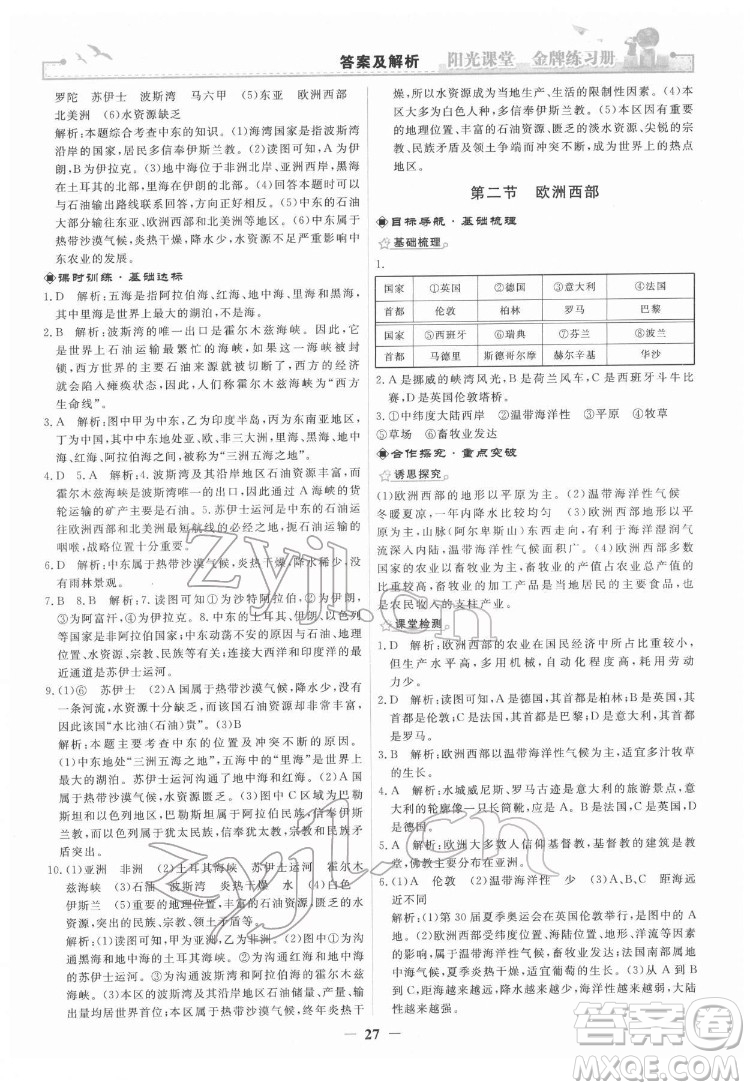 答案及解析
阳光课堂 金牌练习册
罗陀 苏伊士 波斯湾 马六甲 (5)东亚 欧洲西部
北美洲 (6)水资源缺乏
解析:本题综合考查中东的知识。(1)海湾国家是指波斯湾
沿岸的国家,居民多信奉伊斯兰教。(2)读图可知,A为土
耳其,B为伊拉克。(3)地中海位于非洲、亚洲、欧洲之间,
海峡为土耳其海峡。(4)本题可结合本区石油分布特点及
与石油输出路线联系回答。(5)中东石油生产的石油大
部分出口到东亚、西欧、北美洲等地区。(6)由于中东属于
热带沙漠气候,炎热干燥,降水少,水资源不足,因此限制
中东农业的发展。
课时训练·基础达标
1.D 解析:五海是指阿拉伯海、红海、地中海、里海和黑海,
其中里海属于湖泊。
2.B 解析:波斯湾的唯一出口是霍尔木兹海峡。这里是世
界上石油运输最繁忙的海峡,如果封锁,西方国家的经济
就会陷入瘫痪状态,因此霍尔木兹海峡被喻为“西方
生命线”。
3.A 解析:图中甲为中东,乙为印度半岛,丙为中南半岛,
丁为中国,其中中东地处亚、欧、非三大洲交界处,素有
“三洲五海之地”之称。
4.D 5.A 解析:4.波斯湾及其沿岸地区石油资源丰富,
霍尔木兹海峡是波斯湾的出口,因此经过该海峡的货
轮运输的矿产主要是石油。5.苏伊士运河是石油输往
欧洲西部和北美洲最短航线的必经之地,扼两大洋的
咽喉,战略位置十分重要。
6.D 解析:中东属于热带沙漠气候,炎热干燥,降水稀少,没
有雨林景观。
7.B 8.B 解析:7.读图可知,①为沙特阿拉伯,②为伊朗,
③为阿富汗,④为埃及。8.中东的土耳其、伊朗、以色列
等国家不属于阿拉伯国家;中东动荡与石油、地理位置
和水资源都有关;连接大西洋和印度洋及其边缘海的最
近通道是苏伊士运河。
9.(1)⑥ 苏伊士 (2)A国属于热带沙漠气候,降水少,没有
一条河流,水资源十分缺乏,而该国石油资源却非常丰富,
因此该国“水比油(石油)贵”。(3)B
解析:本题主要考查中东的位置及冲突不断的原因。
(1)中东地处“三洲五海之地”。苏伊士运河沟通了红海
和地中海,大大缩短了从印度洋到大西洋的航程。(2)A国
属于热带沙漠气候,水资源匮乏。(3)图中C区域为巴勒
斯坦和以色列,巴勒斯坦是阿拉伯国家,居民信奉伊斯
兰教,而以色列的居民信奉犹太教,宗教和民族文化矛
盾突出。
10.(1)亚洲 非洲 (2)土耳其海峡 苏伊士运河 霍尔木
兹海峡 (3)石油 波斯湾 炎热干燥 (4)阿拉伯
伊斯兰 (5)重要的地理位置、丰富的石油资源、匮乏的
水资源、民族、宗教、领土矛盾等。
解析:(1)读图可知,甲为亚洲、乙为非洲。(2)图中①为
土耳其海峡,②为苏伊士运河,③为霍尔木兹海峡。
(3)本区的波斯湾及其沿岸地区是世界上石油储量、产
量和输出量最多的地区。同时中东地区气候炎热干
燥,所以水资源成为当地生产、生活的限制性因素。(4)本
区大多为白色人种的阿拉伯人,多信奉伊斯兰教。(5)重要
的地理位置、丰富的石油资源、匮乏的淡水资源、尖锐的宗
教、民族矛盾等因素,使该地区冲突不断,成为世界上的热点
地区。
第二节 欧洲西部
目标导航·基础梳理
基础梳理
1.
国家 ①英国 ②德国 ③意大利 ④法国
首都 伦敦 柏林 罗马 巴黎
国家 ⑤西班牙 ⑥瑞典 ⑦芬兰 ⑧波兰
首都 马德里 斯德哥尔摩 赫尔辛基 华沙
2.A是挪威的峡湾风光,B是荷兰风车,C是西班牙斗牛比
赛,D是英国伦敦塔桥。
3.①中纬度大陆西岸 ②温带海洋性 ③平原 ④牧草
⑤草场 ⑥畜牧业发达
合作探究·重点突破
诱思探究
(1)欧洲西部的地形以平原为主。(2)温带海洋性气候
冬暖夏凉,一年内降水比较均匀 (3)欧洲西部以平原为
主,山脉(阿尔卑斯山)东西走向,有利于来自海洋湿润气
流深入内陆,温带海洋性气候面积广。(4)欧洲西部多数
国家农业以畜牧业为主,畜牧业的产值占农业总产值的
比重比较大;畜牧业的加工产品是当地居民的主要食
品;与畜牧业有关的农产品加工业发达,畜牧业是当地
农民收入的支柱产业。
课堂检测
1.D 解析:欧洲西部的农业在国民经济中所占比重较小,
但生产水平高,多用机械耕作,农产品商品率高,以畜牧
业为主。
2.D 解析:读图可知,A是德国,其首都是柏林;B是英国,
其首都是伦敦;C是法国,其首都是巴黎;D是意大利,其首
都是罗马。
3.B 解析:欧洲西部以温带海洋性气候为主,适宜多汁牧草
的生长。
4.D 解析:水城威尼斯、罗马古迹是意大利的旅游景点,意
大利的轮廓像一只长筒靴,应为图中D。
5.A 解析:欧洲大多数人信仰基督教,教堂是基督教的建
筑,佛教主要分布于亚洲。
6.(1)A 伦敦 (2)温带海洋性 少 (3)A、B、C 距海远
近不同
解析:(1)第30届夏季奥运会在英国伦敦举行,是图中的
A。(2)欧洲西部受纬度位置、海陆位置、地形、洋流等因素
的影响,属于典型的温带海洋性气候,终年温和湿润,而
南部地区则属于地中海气候,夏季炎热干燥。(3)从A到B
到C,距海越来越远,受海洋影响越来越小,气候的大陆
性越来越强。
27
zyjl.cn
zyjl.cn
答案圈
MXQE.COM